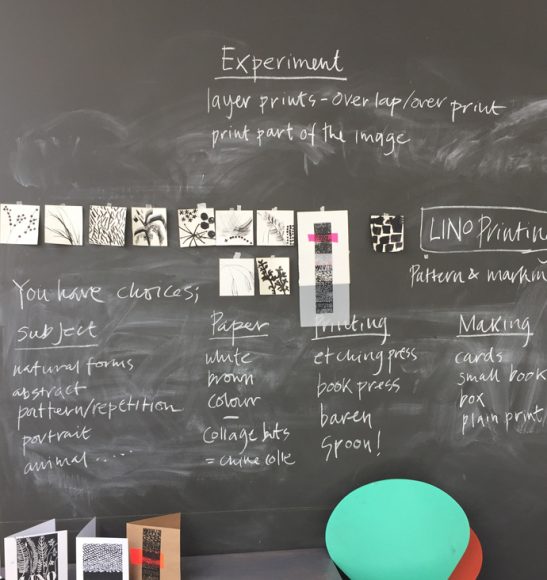 Experiment
layer prints - overlap/over print
print part of the image
LINO Printin
Pattern & markin
You have choices;
Subject
natural forms
abstract
pattern/repetition
portrait
animal ......
Paper
white
brown
colour
collage bits
= chine colle
Printing
etching press
book press
baren
spoon!
Making
cards
small book
box
plain print/